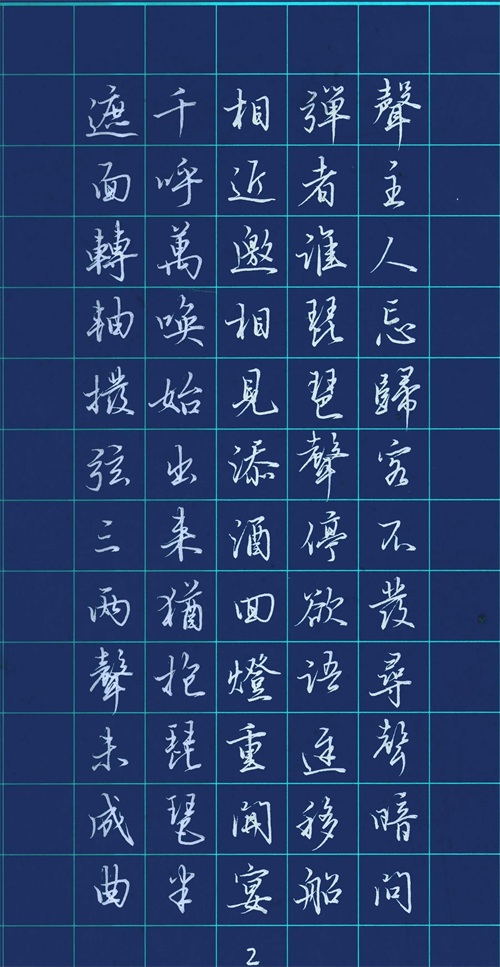 聲主人忘歸客不發尋聲暗問
彈者誰琵琶聲停欲語遲移船
相近邀相見添酒回燈重開宴
千呼萬喚始出来猶抱琵琶半
遮面轉軸撥弦三两聲未成曲
2